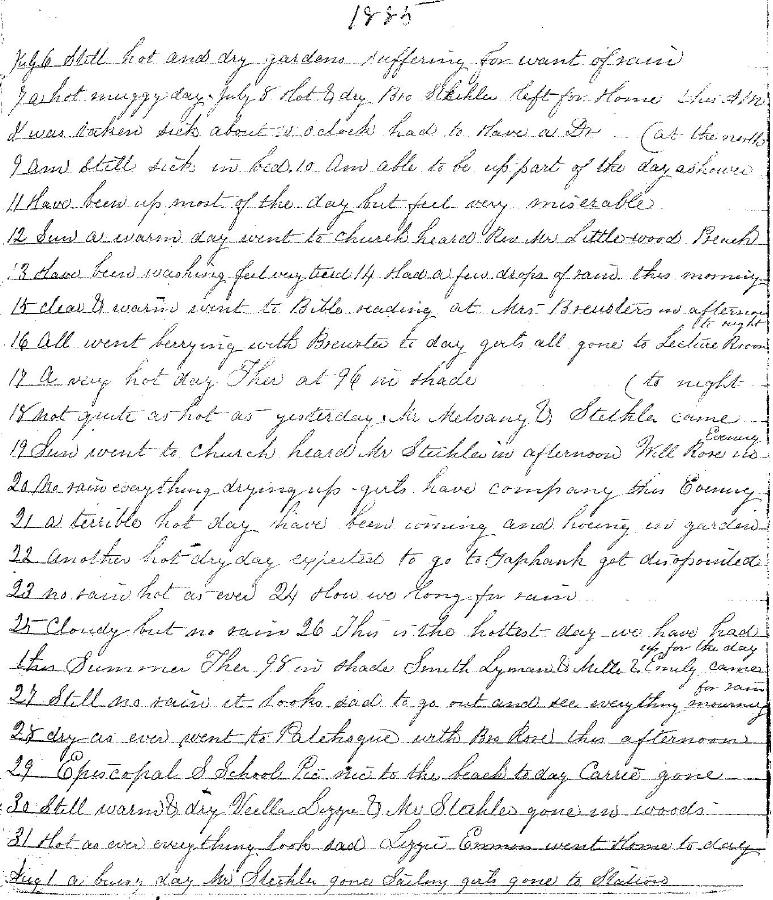 1885
July 6 Still hot and dry gardens suffering for want of rain
7 a hot muggy day. July 8 Hot & dry Bro Stehle left for Home this A M
I was taken sick about o clock had to Have a Dr (at the north
9 am Still sick in bed. 10 Am able to be up part of the day a shower
11 Have been up most of the day but feel very miserable
12 Sun a warm day went to church heard Rev Mr Littlewood Preach
13 Have been washing feel very tired 14 Had a few drops of rain this morning
15 clear & warm went to Bible reading at Mrs Brewsters in afternoon
16 All went berrying with Brewster to day girls all gone to Lecture Room
(to night
17 A very hot day Ther at 96 in shade (to night
18 not quite as hot as yesterday. Mr & Stehle came
19 Sun went to church heard Mr Stehle in afternoon Will Rose in
Evening
20 No rain everything drying up - girls have company this Evening
21 a terrible hot day have been and hoeing in garden
22 Another hot dry day expected to go to Yaphank got
23 no rain hot as ever 24 How we long for rain
25 Cloudy but no rain 26 This is the hottest day we have had
this Summer Ther 98 in shade Smith Lyman & & Emily came
up for the day
27 Still no rain it looks sad to go out and see everything mourning
for rain
28 dry as ever went to with Bro Rose this afternoon
29 Episcopal S School Pic nic to the beach to day Carrie gone
30 Still warm & dry Lizzie & Mr Stehle gone in woods
31 Hot as ever everything look sad Lizzie went Home to day
Aug 1 a busy day Mr Stehle gone Sailing girls gone to Station